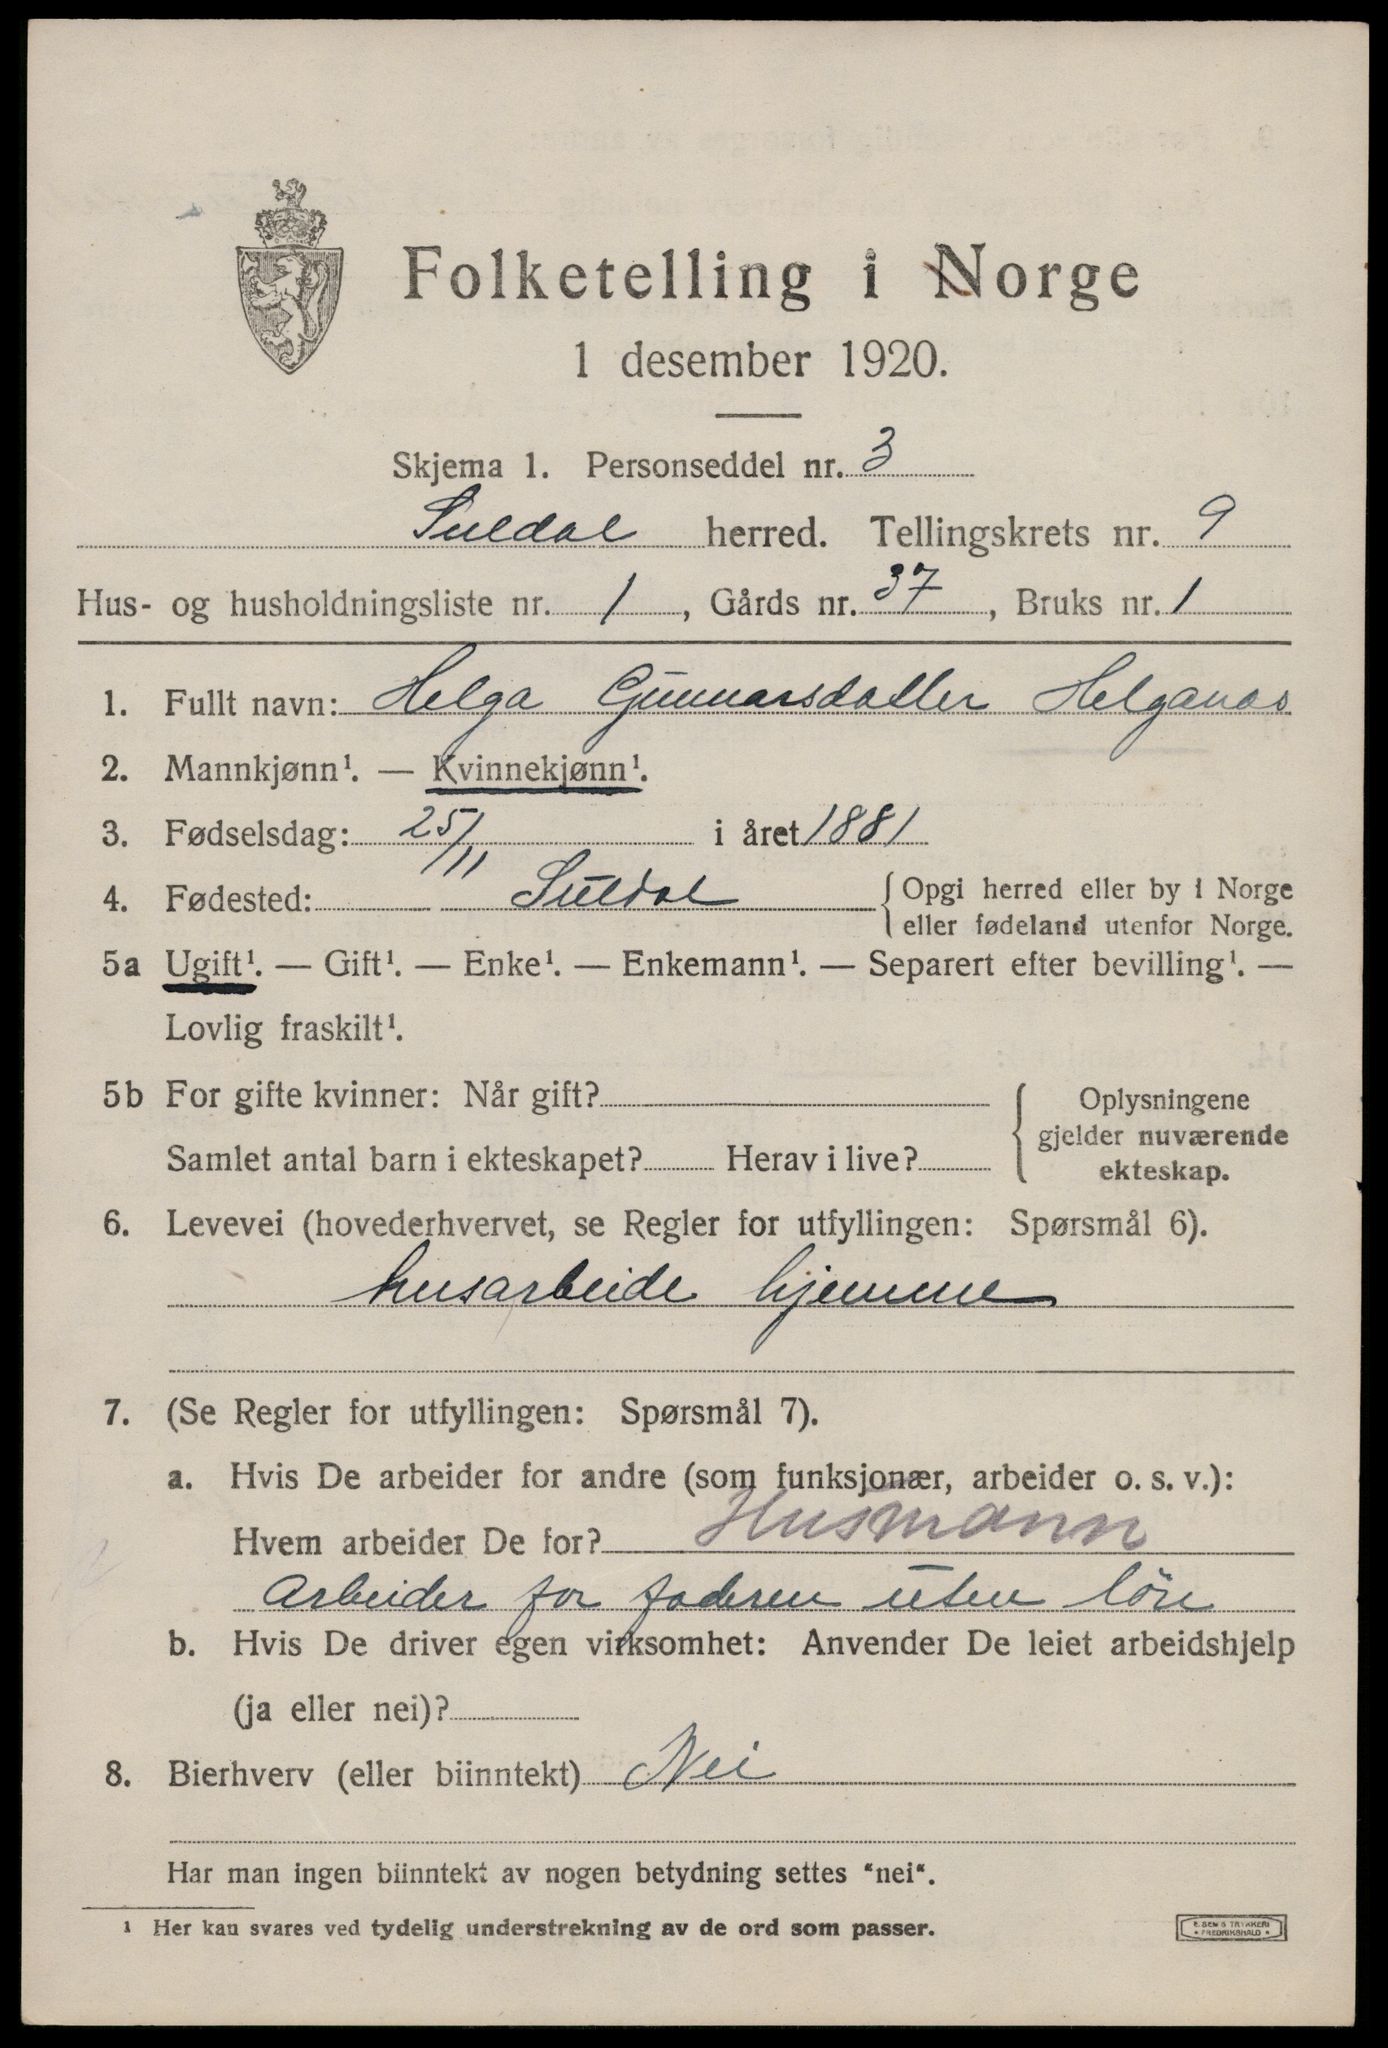 Folketelling i Norge
1 desember 1920.
Skjema 1. Personseddel nr. 3
Suldal herred. Tellingskrets nr. 9
Hus- og husholdningsliste nr. 1, Gårds nr. 37, Bruks nr. 1
1. Fullt navn: Helga Gunnarsdatter Helganes
2. Mannkjønn¹. — Kvinnekjønn¹.
3. Fødselsdag: 25/11 i året 1881
4. Fødested: Suldal { Opgi herred eller by i Norge
eller fødeland utenfor Norge.
5a Ugift¹. — Gift¹. — Enke¹. — Enkemann¹. — Separert efter bevilling¹. —
Lovlig fraskilt¹.
5b For gifte kvinner: Når gift?
Samlet antal barn i ekteskapet? Herav i live?
{ Oplysningene
gjelder nuværende
ekteskap.
6. Levevei (hovederhvervet, se Regler for utfyllingen: Spørsmål 6).
husarbeide hjemme
7. (Se Regler for utfyllingen: Spørsmål 7).
a. Hvis De arbeider for andre (som funksjonær, arbeider o. s. v.):
Hvem arbeider De for? Husmann
Arbeider for faderen uten løn
b. Hvis De driver egen virksomhet: Anvender De leiet arbeidshjelp
(ja eller nei)?
8. Bierhverv (eller biinntekt) Nei
Har man ingen biinntekt av nogen betydning settes "nei".
¹ Her kan svares ved tydelig understrekning av de ord som passer.
TRYKKERI
* FREDRIKSHALD *